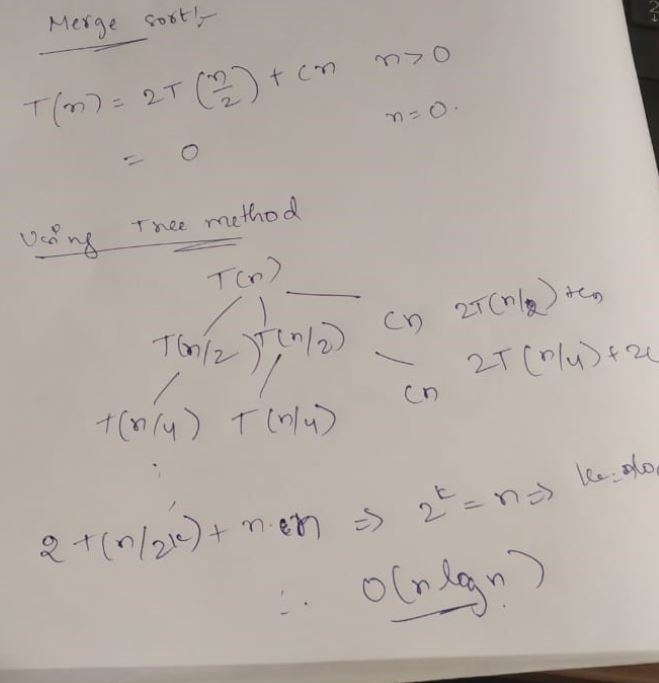 Merge sort:-
T(n) = 2T(n/2) + cn n>0
= 0 n=0.
Using Tree method
T(n)
T(n/2) T(n/2) cn 2T(n/2) +cn
T(n/4) T(n/4) cn 2T(n/4) + 2c
⋮
2T(n/2^k) + n. ⇒ 2^k = n ⇒
∴ O(n log n)